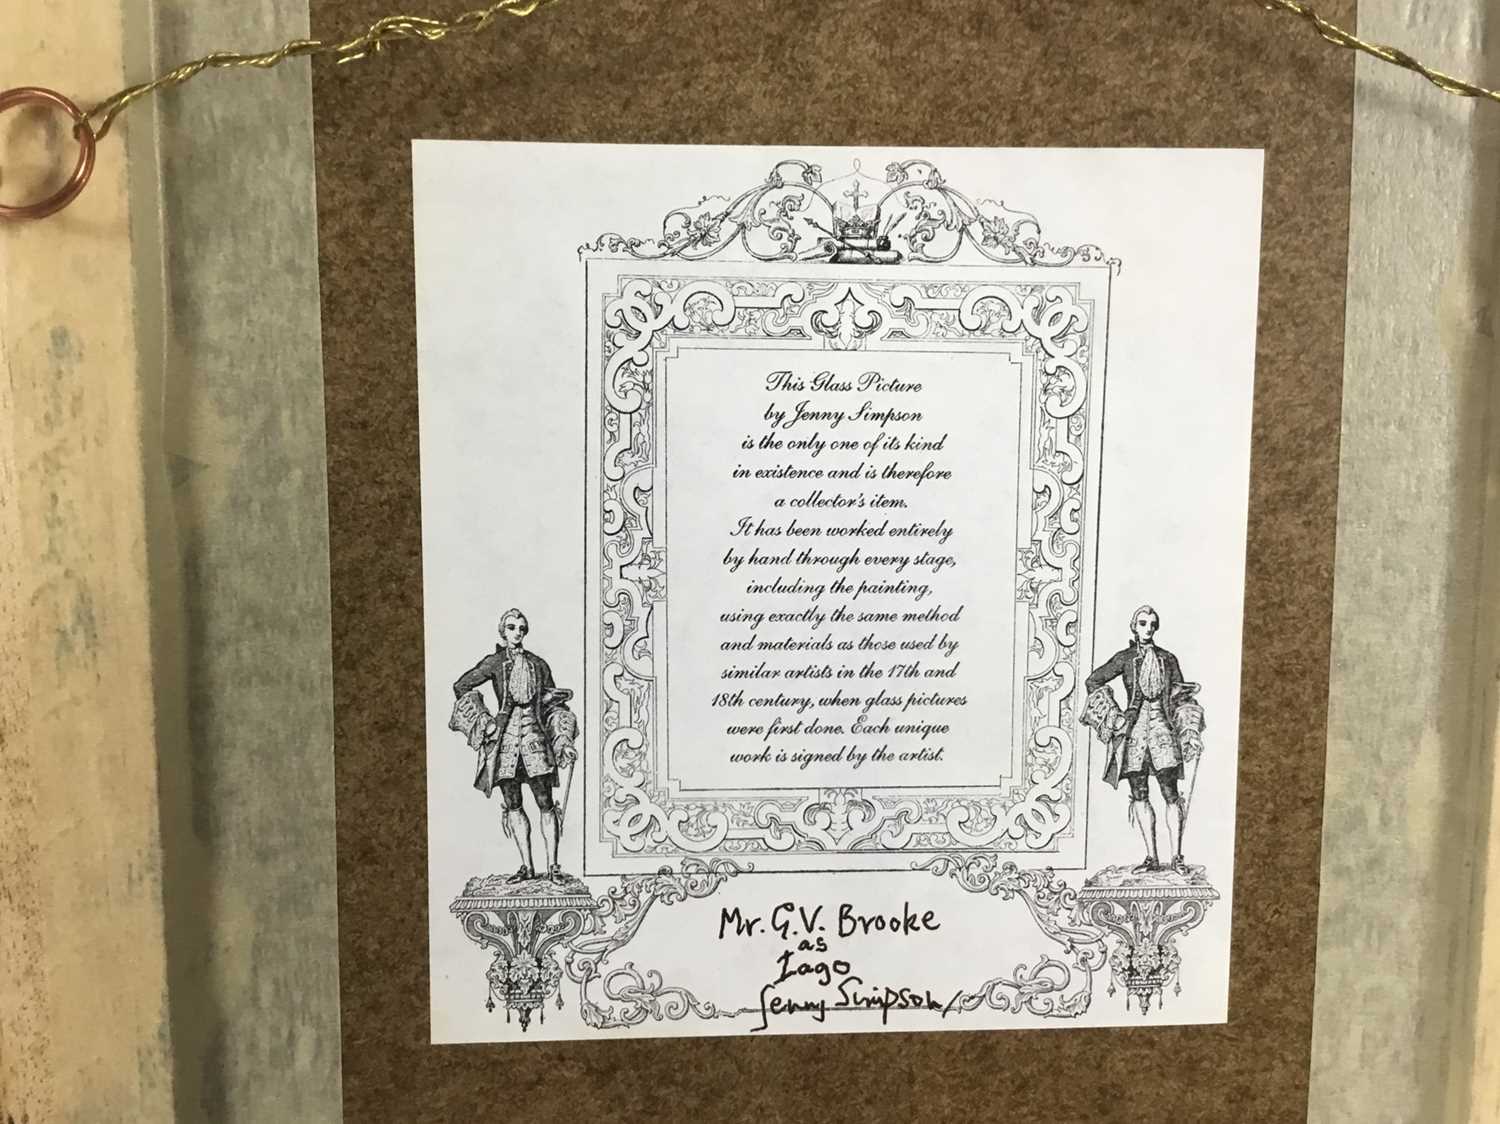 This Glass Picture
by Jenny Simpson
is the only one of its kind
in existence and is therefore
a collector's item.
It has been worked entirely
by hand through every stage,
including the painting,
using exactly the same method
and materials as those used by
similar artists in the 17th and
18th century, when glass pictures
were first done. Each unique
work is signed by the artist.
Mr. G.V. Brooke
as
Iago
Jenny Simpson